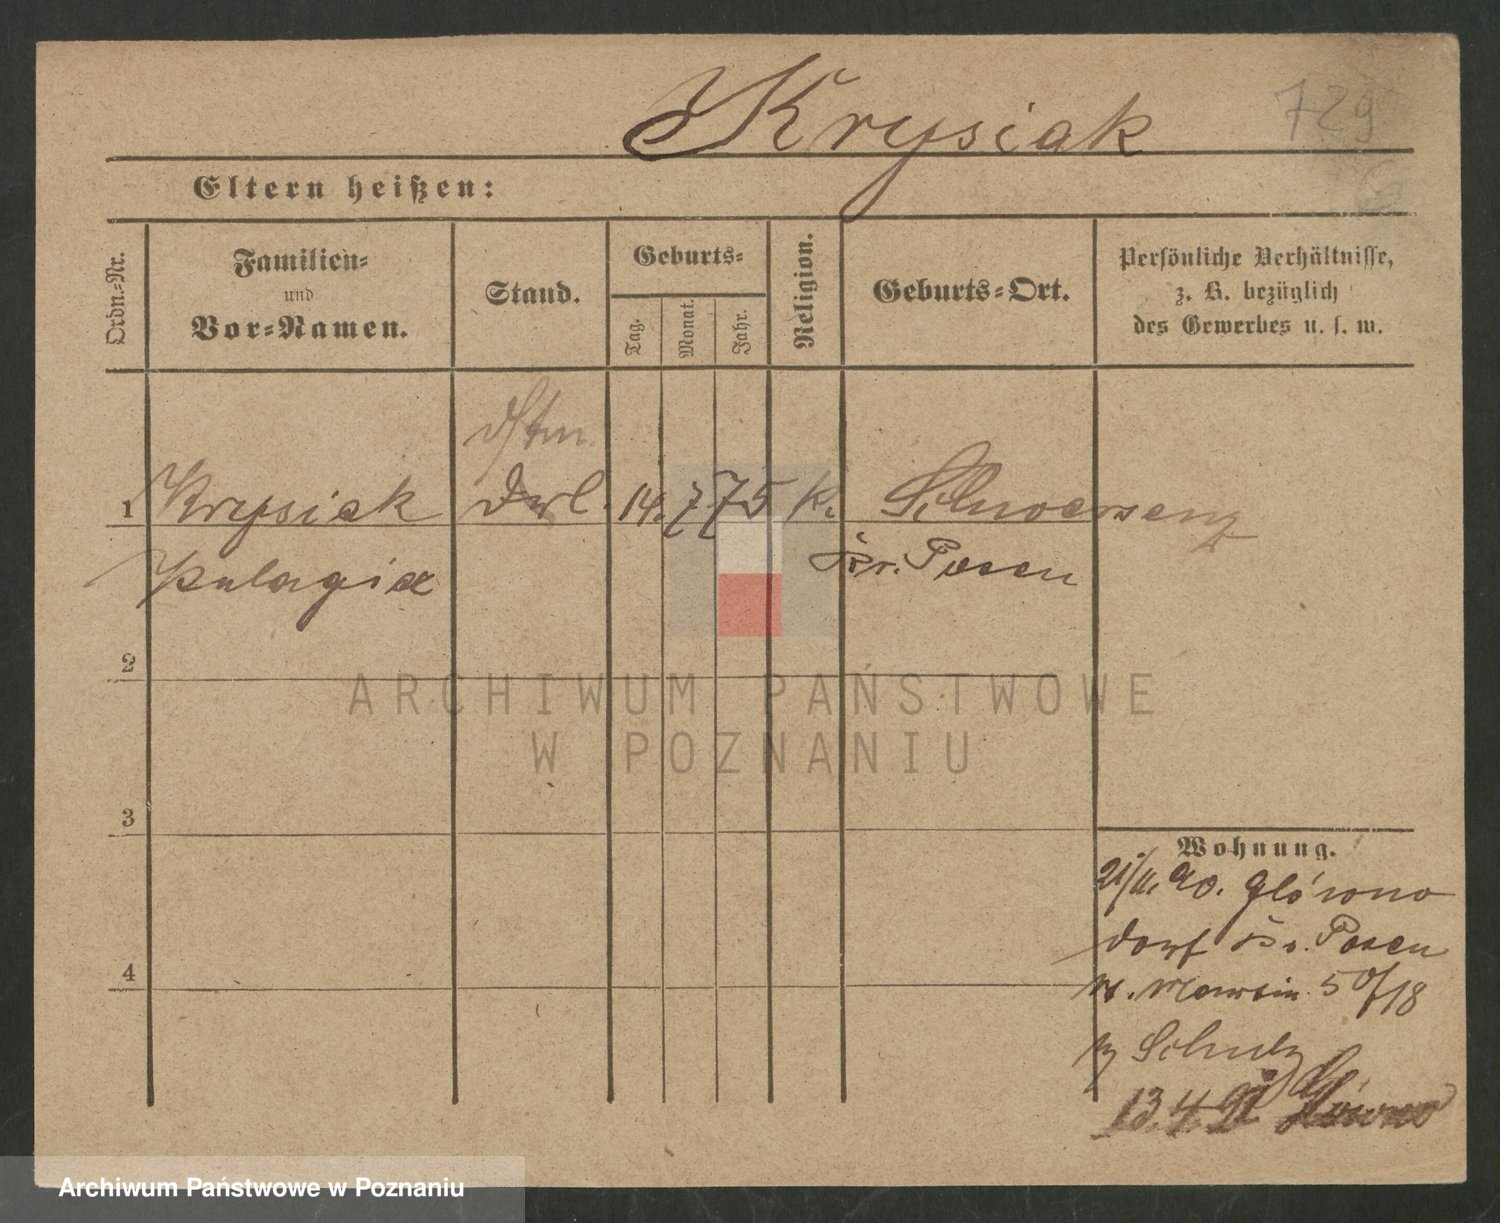 Krysiak
729
Eltern heißen:
Ordn.-Nr.
Familien-
und
Vor-Namen.
Stand.
Geburts-
Tag.
Monat.
Jahr.
Religion.
Geburts-Ort.
Persönliche Verhältnisse,
z. B. bezüglich
des Gewerbes u. s. w.
1 Krysiak 14. 7 75 K. Schwersenz
Pelagia Kr. Posen
2
3
4
Wohnung.
21/11. 90. Główno
Dorf Kr. Posen
Martin 50/18
z Schulz
13.4.91 Główno
ARCHIWUM PAŃSTWOWE
W POZNANIU
Archiwum Państwowe w Poznaniu